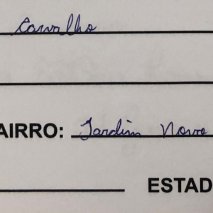 Carvalho
AIRRO: Jardim Novo
ESTAD